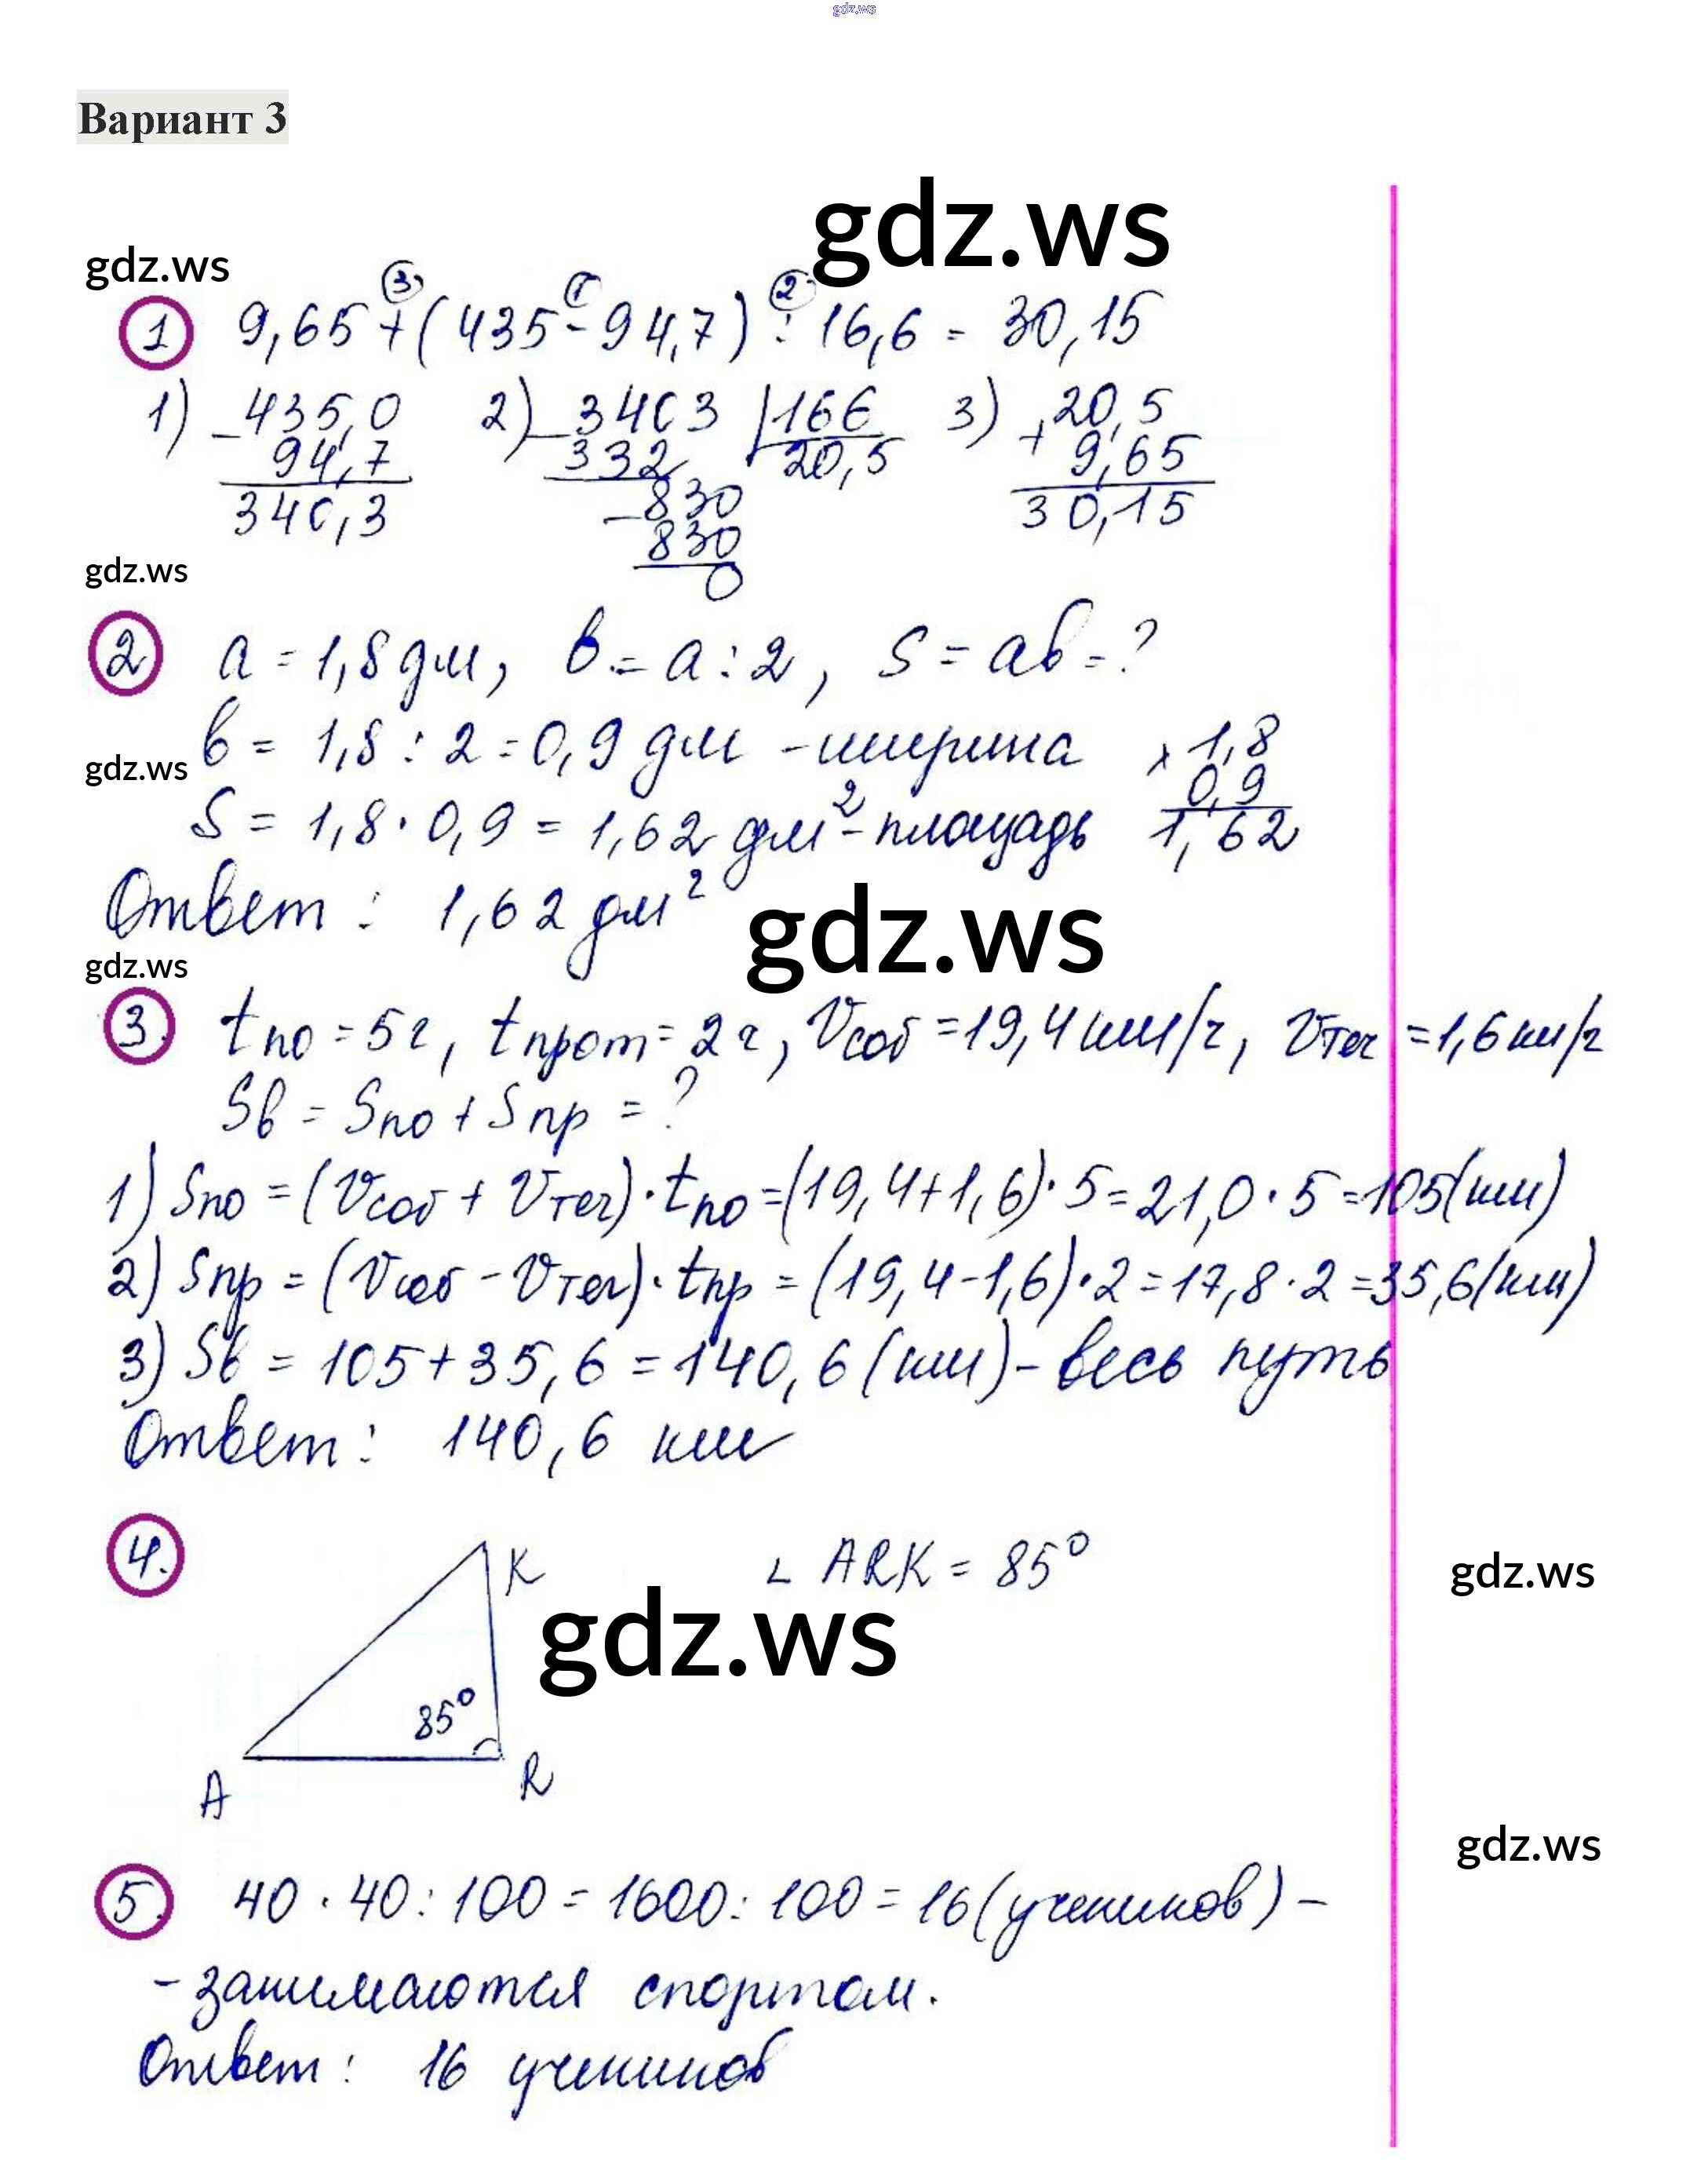 gdz.ws
Вариант 3
gdz.ws
gdz.ws
3 1 2
1 9,65 + (435 - 94,7) : 16,6 = 30,15
1) 435,0 2) 3403 | 166 3) 20,5
- 94,7 - 332 20,5 + 9,65
340,3 - 830 30,15
830
gdz.ws
0
2 a = 1,8 дм, b = a : 2, S = ab = ?
b = 1,8 : 2 = 0,9 дм - ширина × 1,8
gdz.ws
0,9
S = 1,8 · 0,9 = 1,62 дм² - площадь 1,62
Ответ : 1,62 дм²
gdz.ws
gdz.ws
3. tпо = 5ч, tпрот = 2ч, Vсоб = 19,4 км/ч, Vтеч = 1,6 км/ч
Sв = Sпо + Sпр = ?
1) Sпо = (Vсоб + Vтеч) · tпо = (19,4+1,6) · 5 = 21,0 · 5 = 105 (км)
2) Sпр = (Vсоб - Vтеч) · tпр = (19,4-1,6) · 2 = 17,8 · 2 = 35,6 (км)
3) Sв = 105 + 35,6 = 140,6 (км) - весь путь
Ответ : 140,6 км
4. K ∠ ARK = 85°
gdz.ws
gdz.ws
85°
A R
gdz.ws
5. 40 · 40 : 100 = 1600 : 100 = 16 (учеников) -
- занимаются спортом.
Ответ : 16 учеников